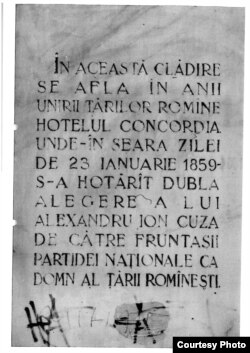 ÎN ACEASTĂ CLĂDIRE
SE AFLA ÎN ANII
UNIRII ȚĂRILOR ROMÎNE
HOTELUL CONCORDIA
UNDE-ÎN SEARA ZILEI
DE 23 IANUARIE 1859-
S-A HOTĂRÎT DUBLA
ALEGERE A LUI
ALEXANDRU ION CUZA
DE CĂTRE FRUNTAȘII
PARTIDEI NAȚIONALE CA
DOMN AL ȚĂRII ROMÎNEȘTI.
Courtesy Photo